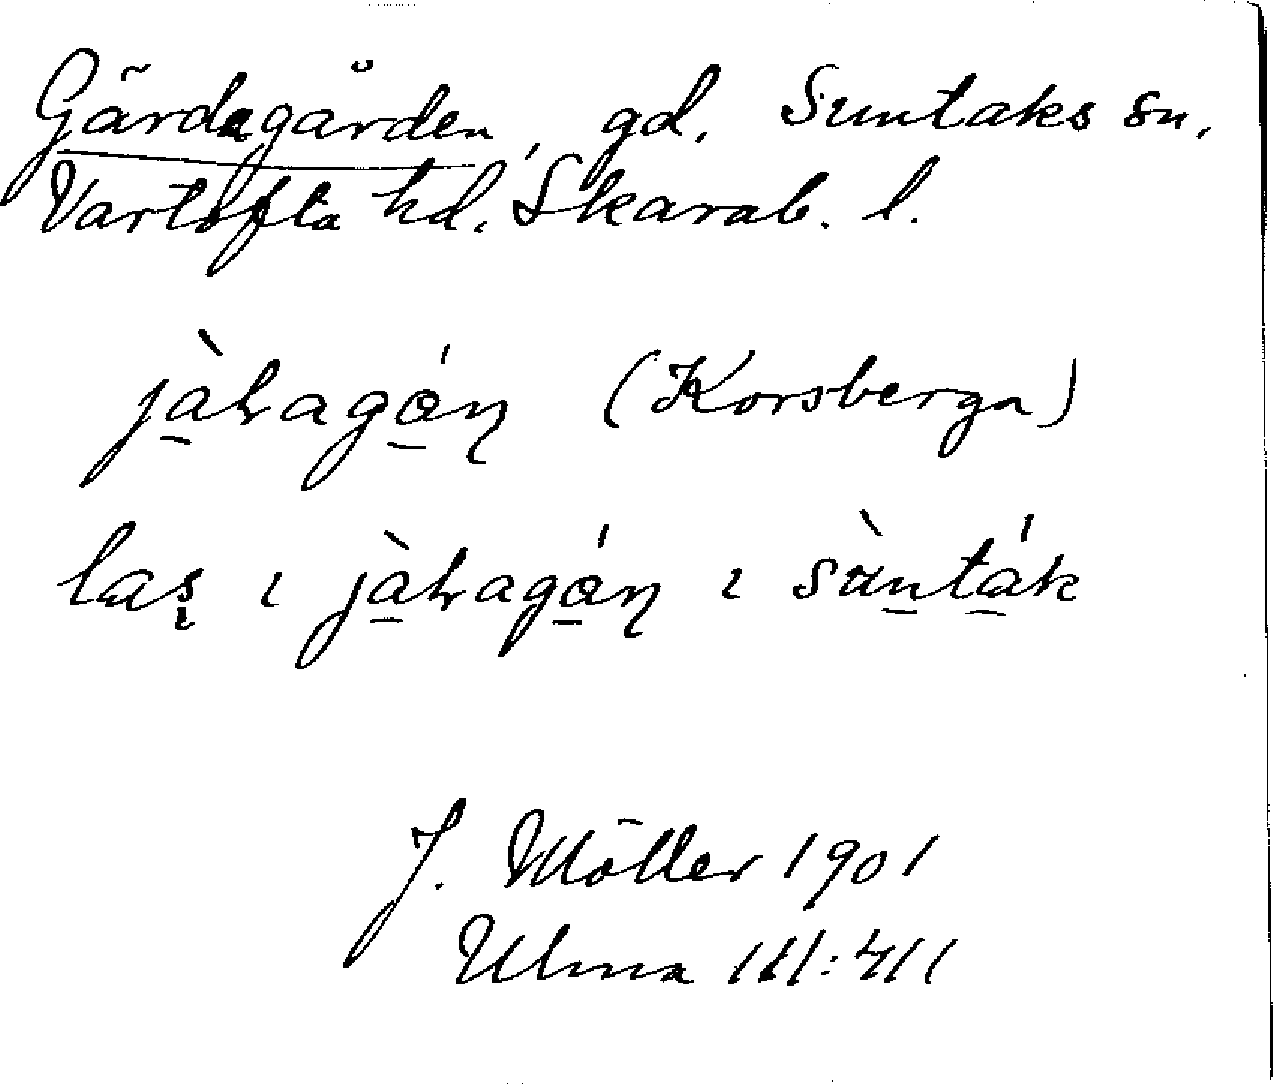 Gärdagården, gd. Suntaks sn,
Vartofta hd. Skarab. l.
jàꞎagán̨ (Korsberga)
las̨ ɩ jàꞎagán̨ ɩ sùnták
J. Möller 1901
Ulma 111:411